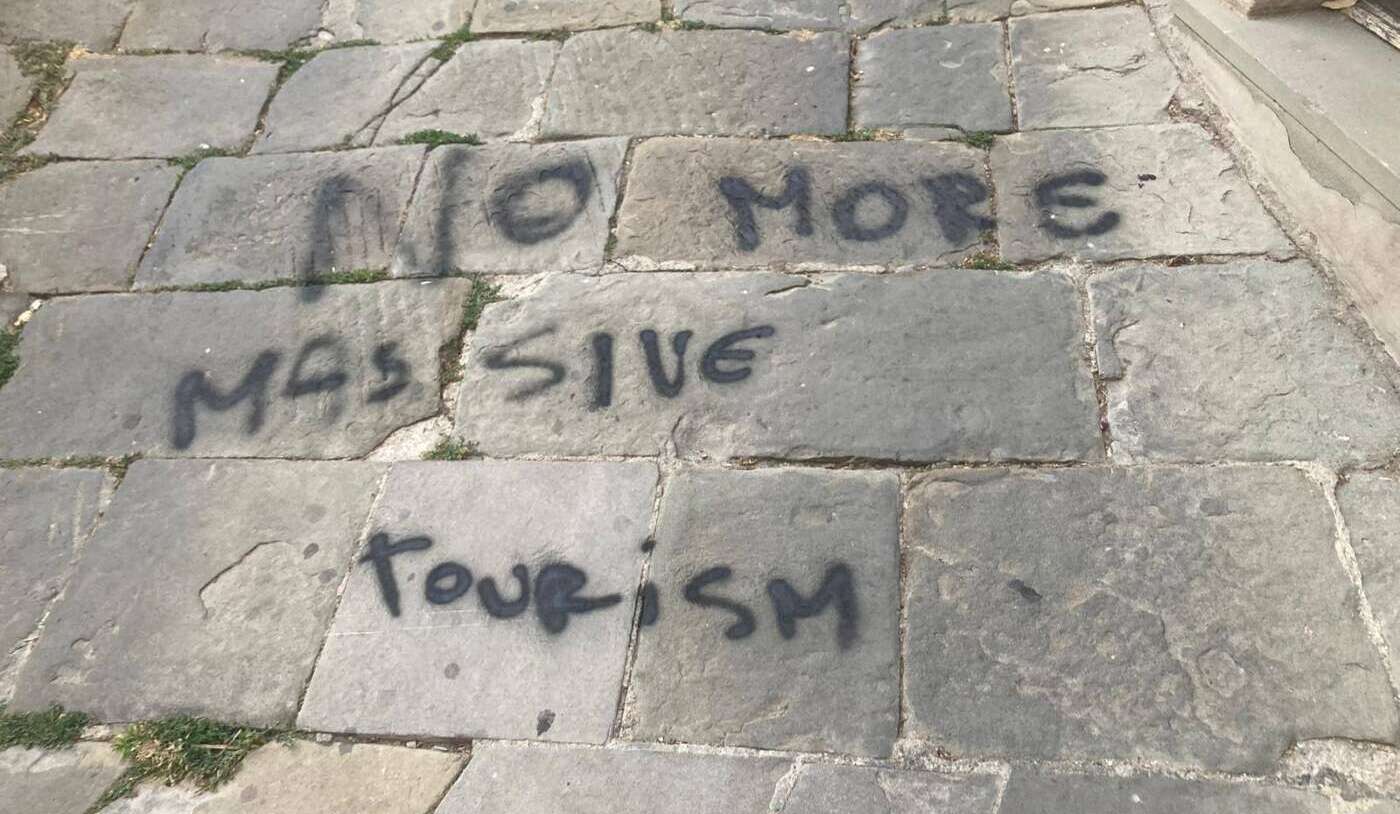 NO MORE
MASSIVE
TOURiSM